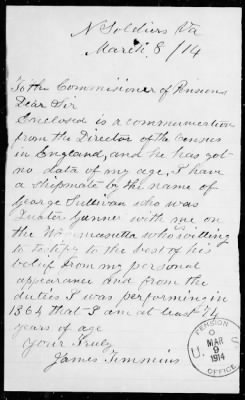 N Soldiers Va
March 8/14
To the Commisioner of Pensions
Dear Sir
Enclosed is a communication
from the Director of the Census
in England, and he has got
no data of my age, I have
a shipmate by the name of
George Sullivan who was
Quator Gunner with me on
the Wamasutta who is willing
to testify to the best of his
belief from my personal
appearance and from the
duties I was performing in
1864 that I am at least 74
years of age
Your Truly
James Timmins
PENSION
U.S.
MAR
9
1914
OFFICE